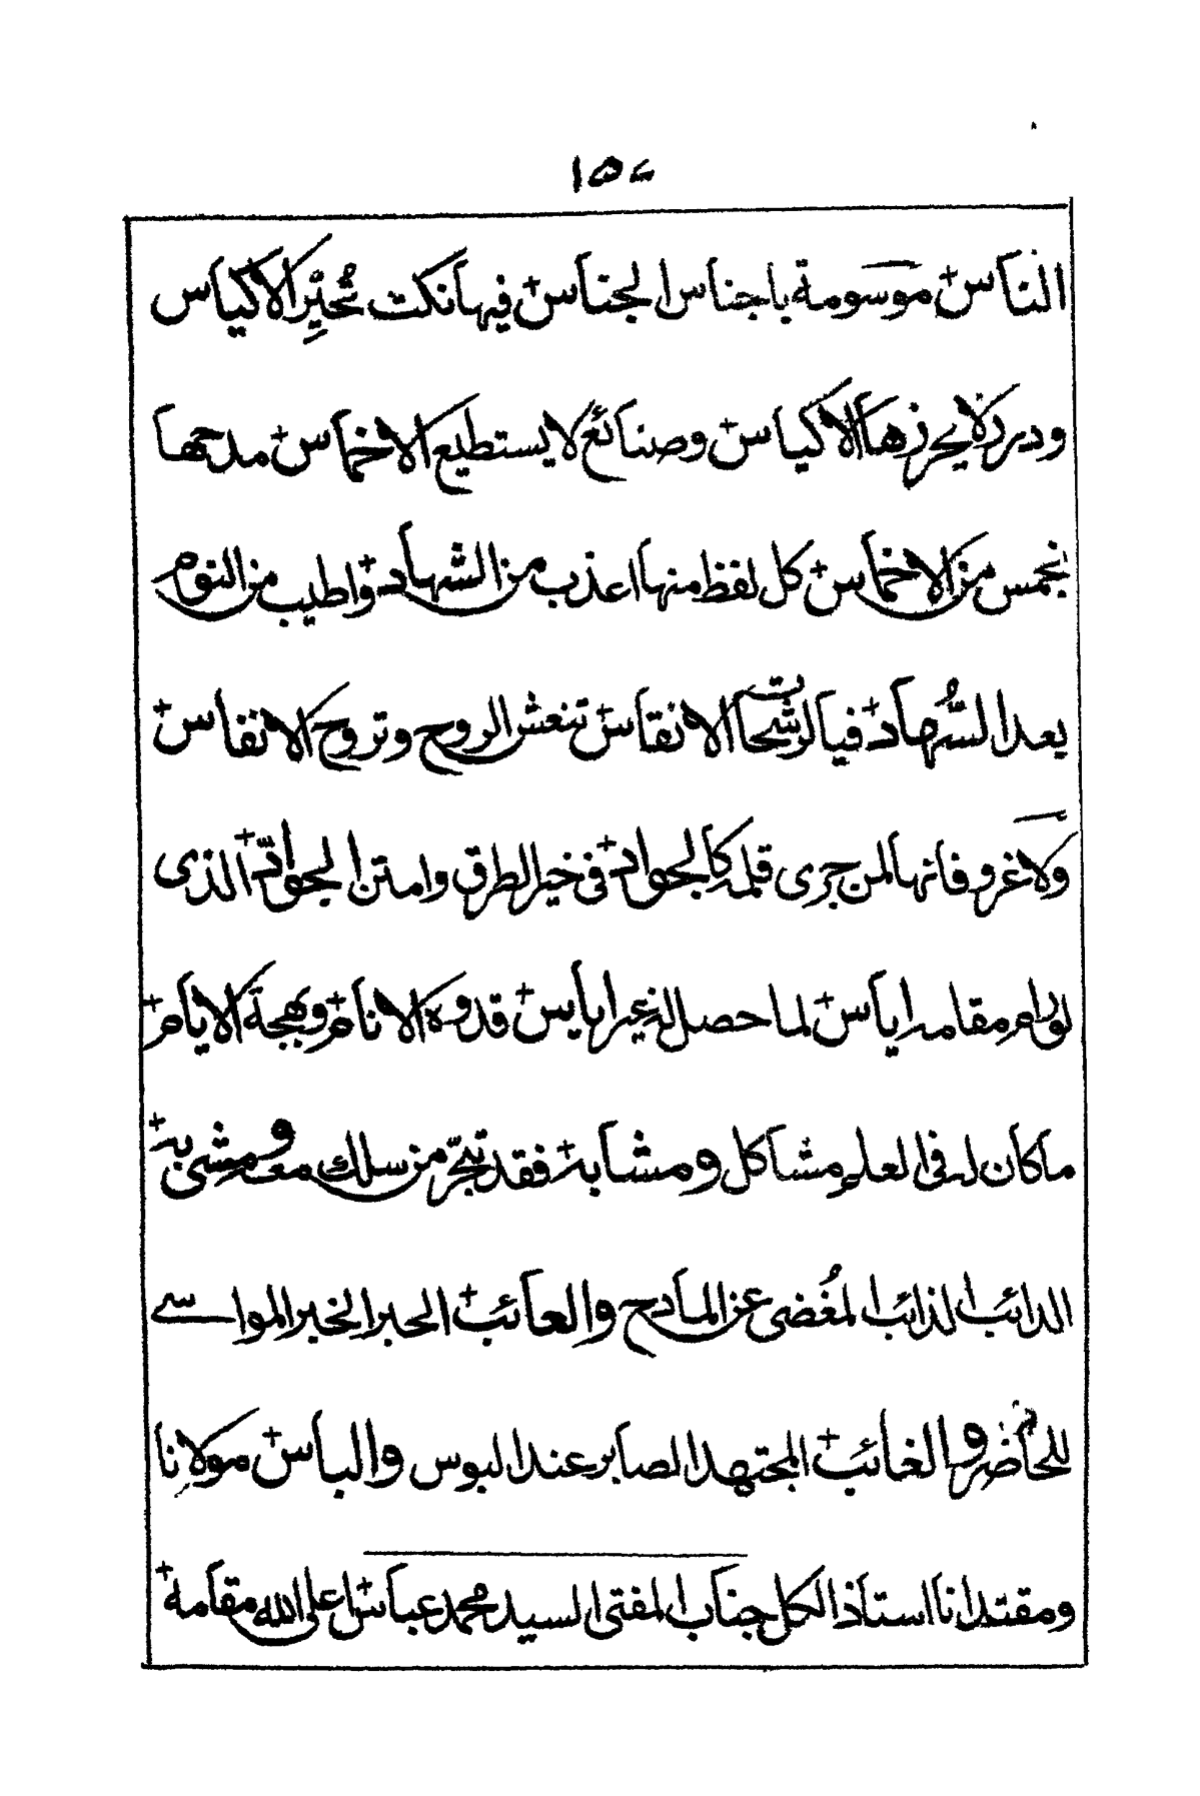 ١٥٧
الناس موسومة باجناس الجناس فيها نكت تُحيِّر الاكياس
ودرر لا يحرزها الا كياس وصنائع لا يستطيع الاخماس مدحها
بخمس من الاخماس كل لفظ منها اعذب من الشهاد واطيب من النوم
بعد السُّهاد فيا لرشحات الانقاس تنعش الروح وتروح الانفاس
ولا غرو فانها لمن جرى قلمه كالجواد فى خير الطرق وامتن الجوادّ الذى
لو رام مقامه اياس لما حصل له غير اياس قدوة الانام وبهجة الايام
ما كان له فى العلم مشاكل ومشابه فقد تبحّر من سلك معه ومشى به
الدائب الذائب المُغضى عن المادح والعائب الحبر الخبر المواسے
للحاضر والغائب المجتهد الصابر عند البوس والباس مولانا
ومقتدانا استاذ الكل جناب المفتى السيد محمد عباس اعلى الله مقامه